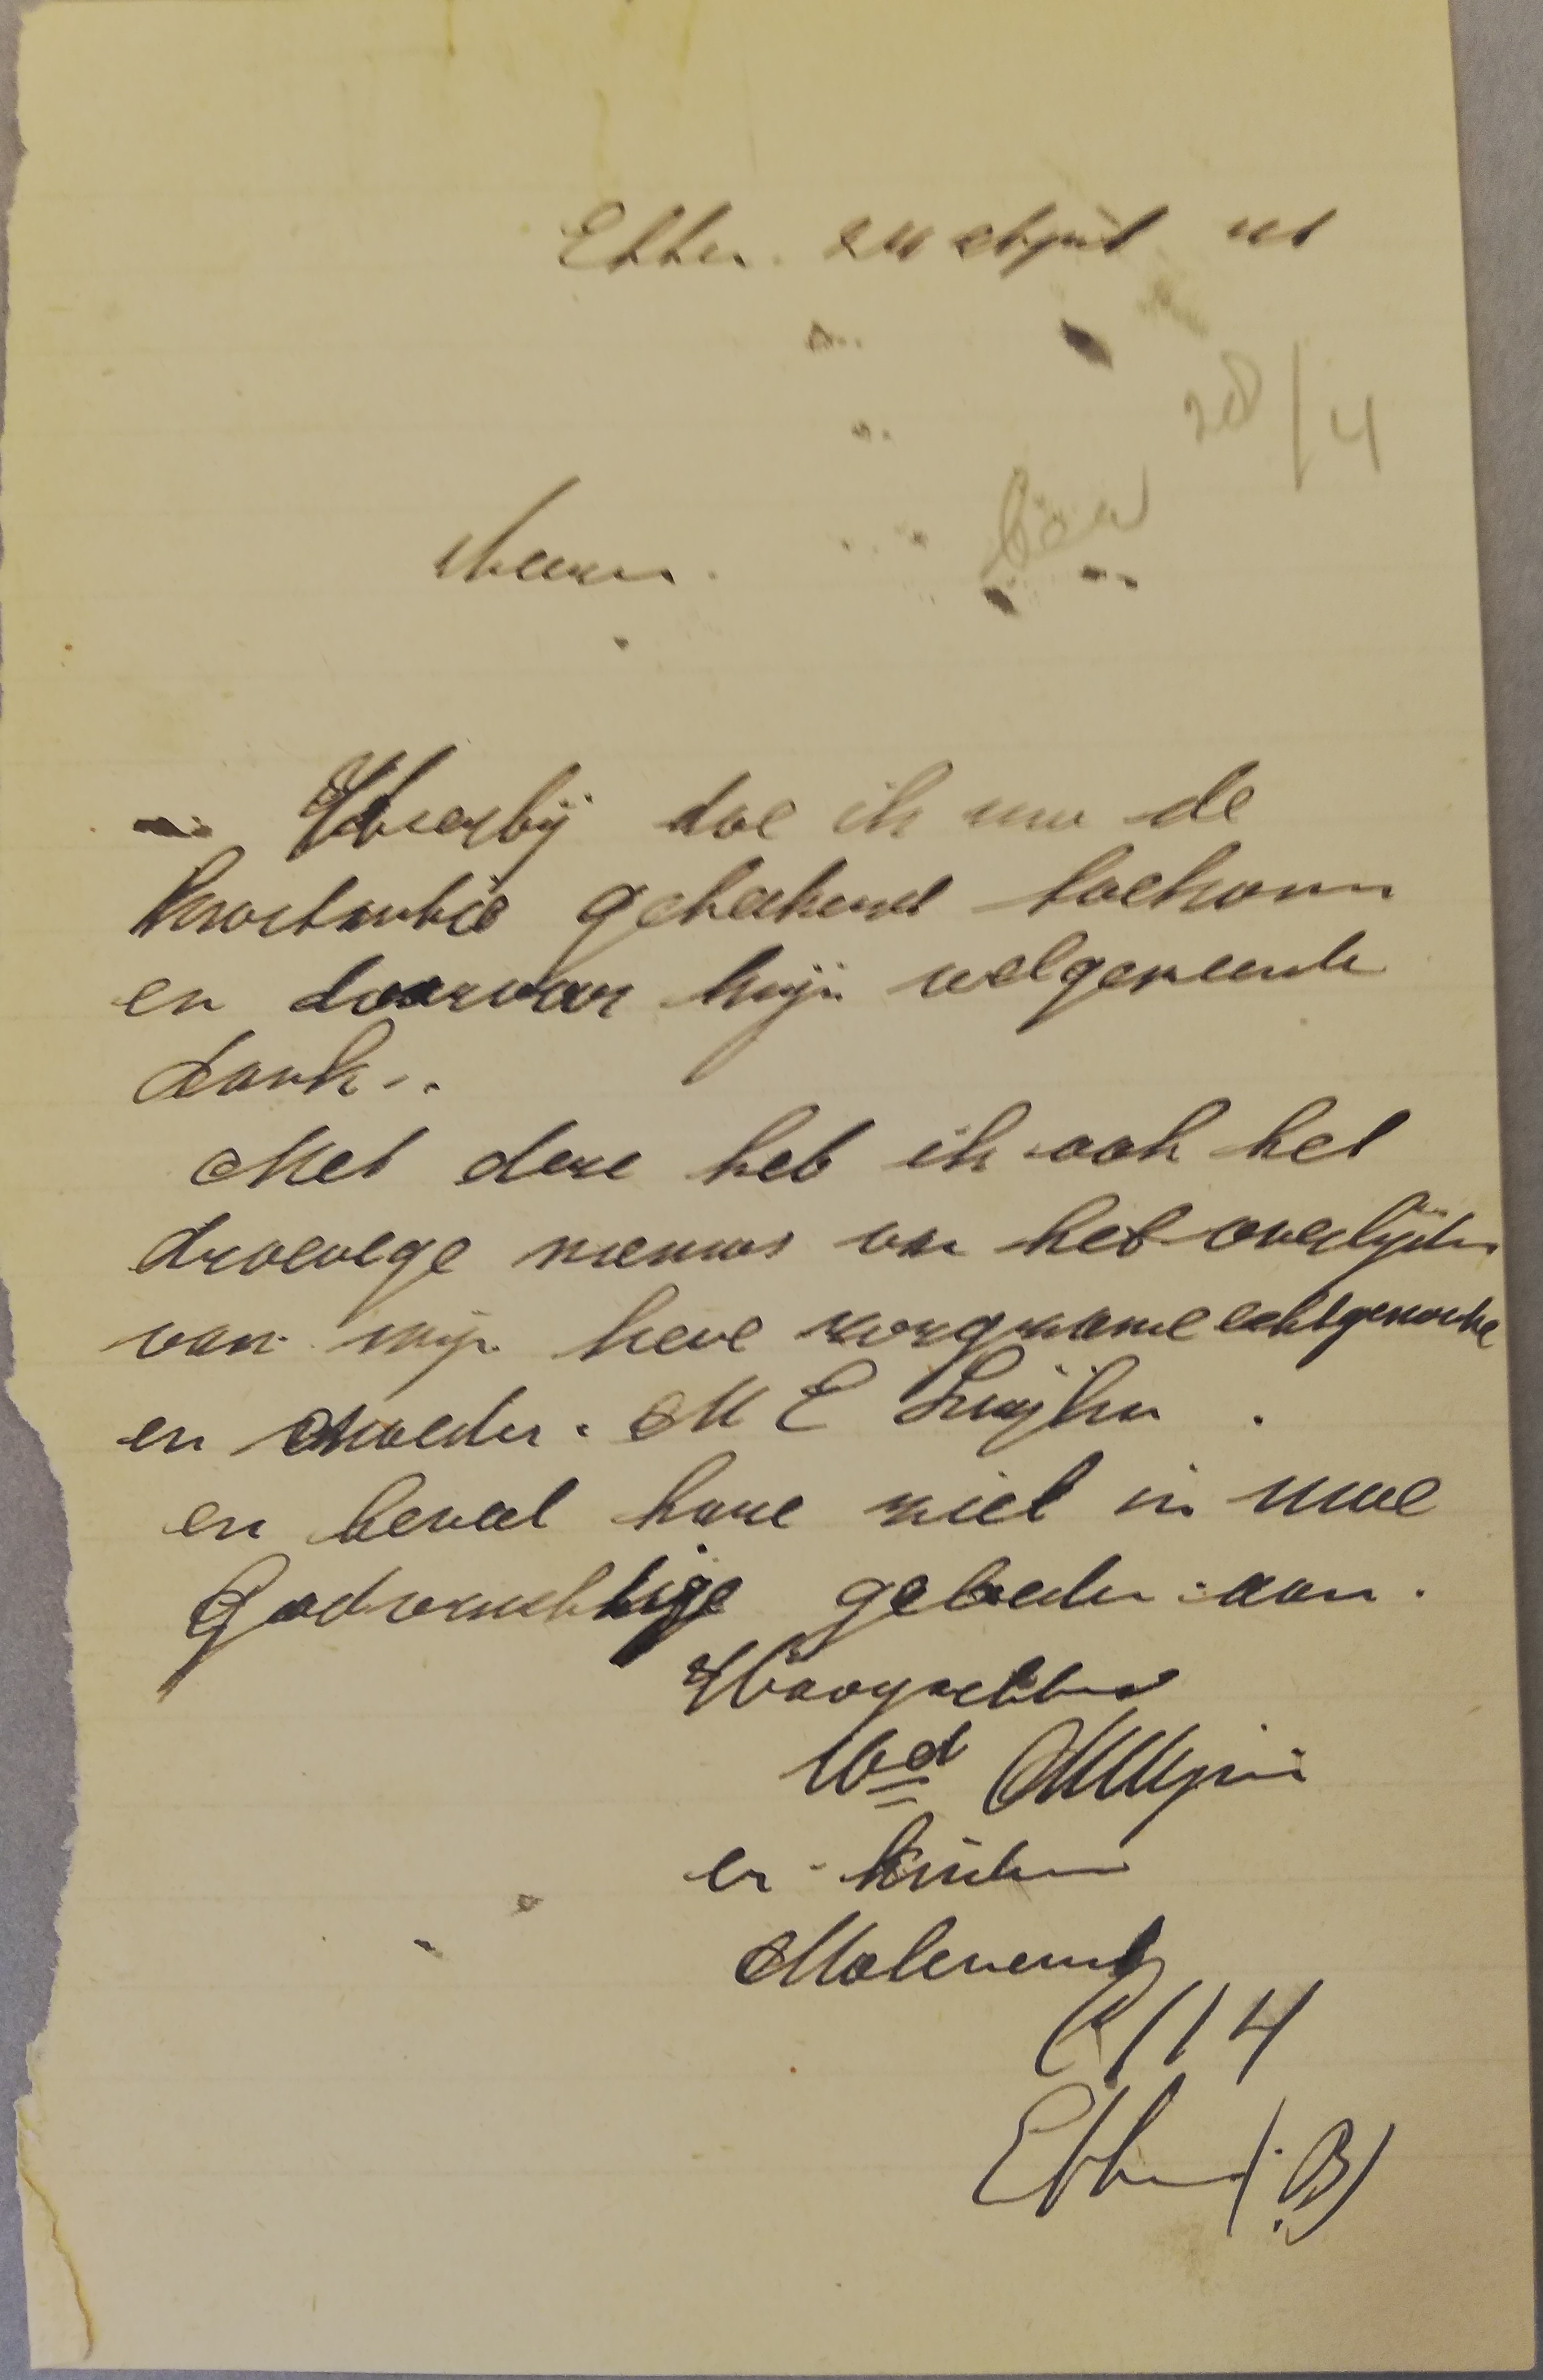 Etten. April
28/4
Heeren.
Hierbij doe ik uw de
kwitantie geteekend toekomen
en daarvoor mijn welgemeende
dank..
Met deze heb ik ook het
droevege nieuws van het overlijden
van mijn lieve zorgzame echtgenoote
en Moeder. M E
en beveel hare ziel in uwe
Godvruchtige gebeden aan.
Hoogachtend
Wed
en kinderen
Moleneind
114
Etten (:B)